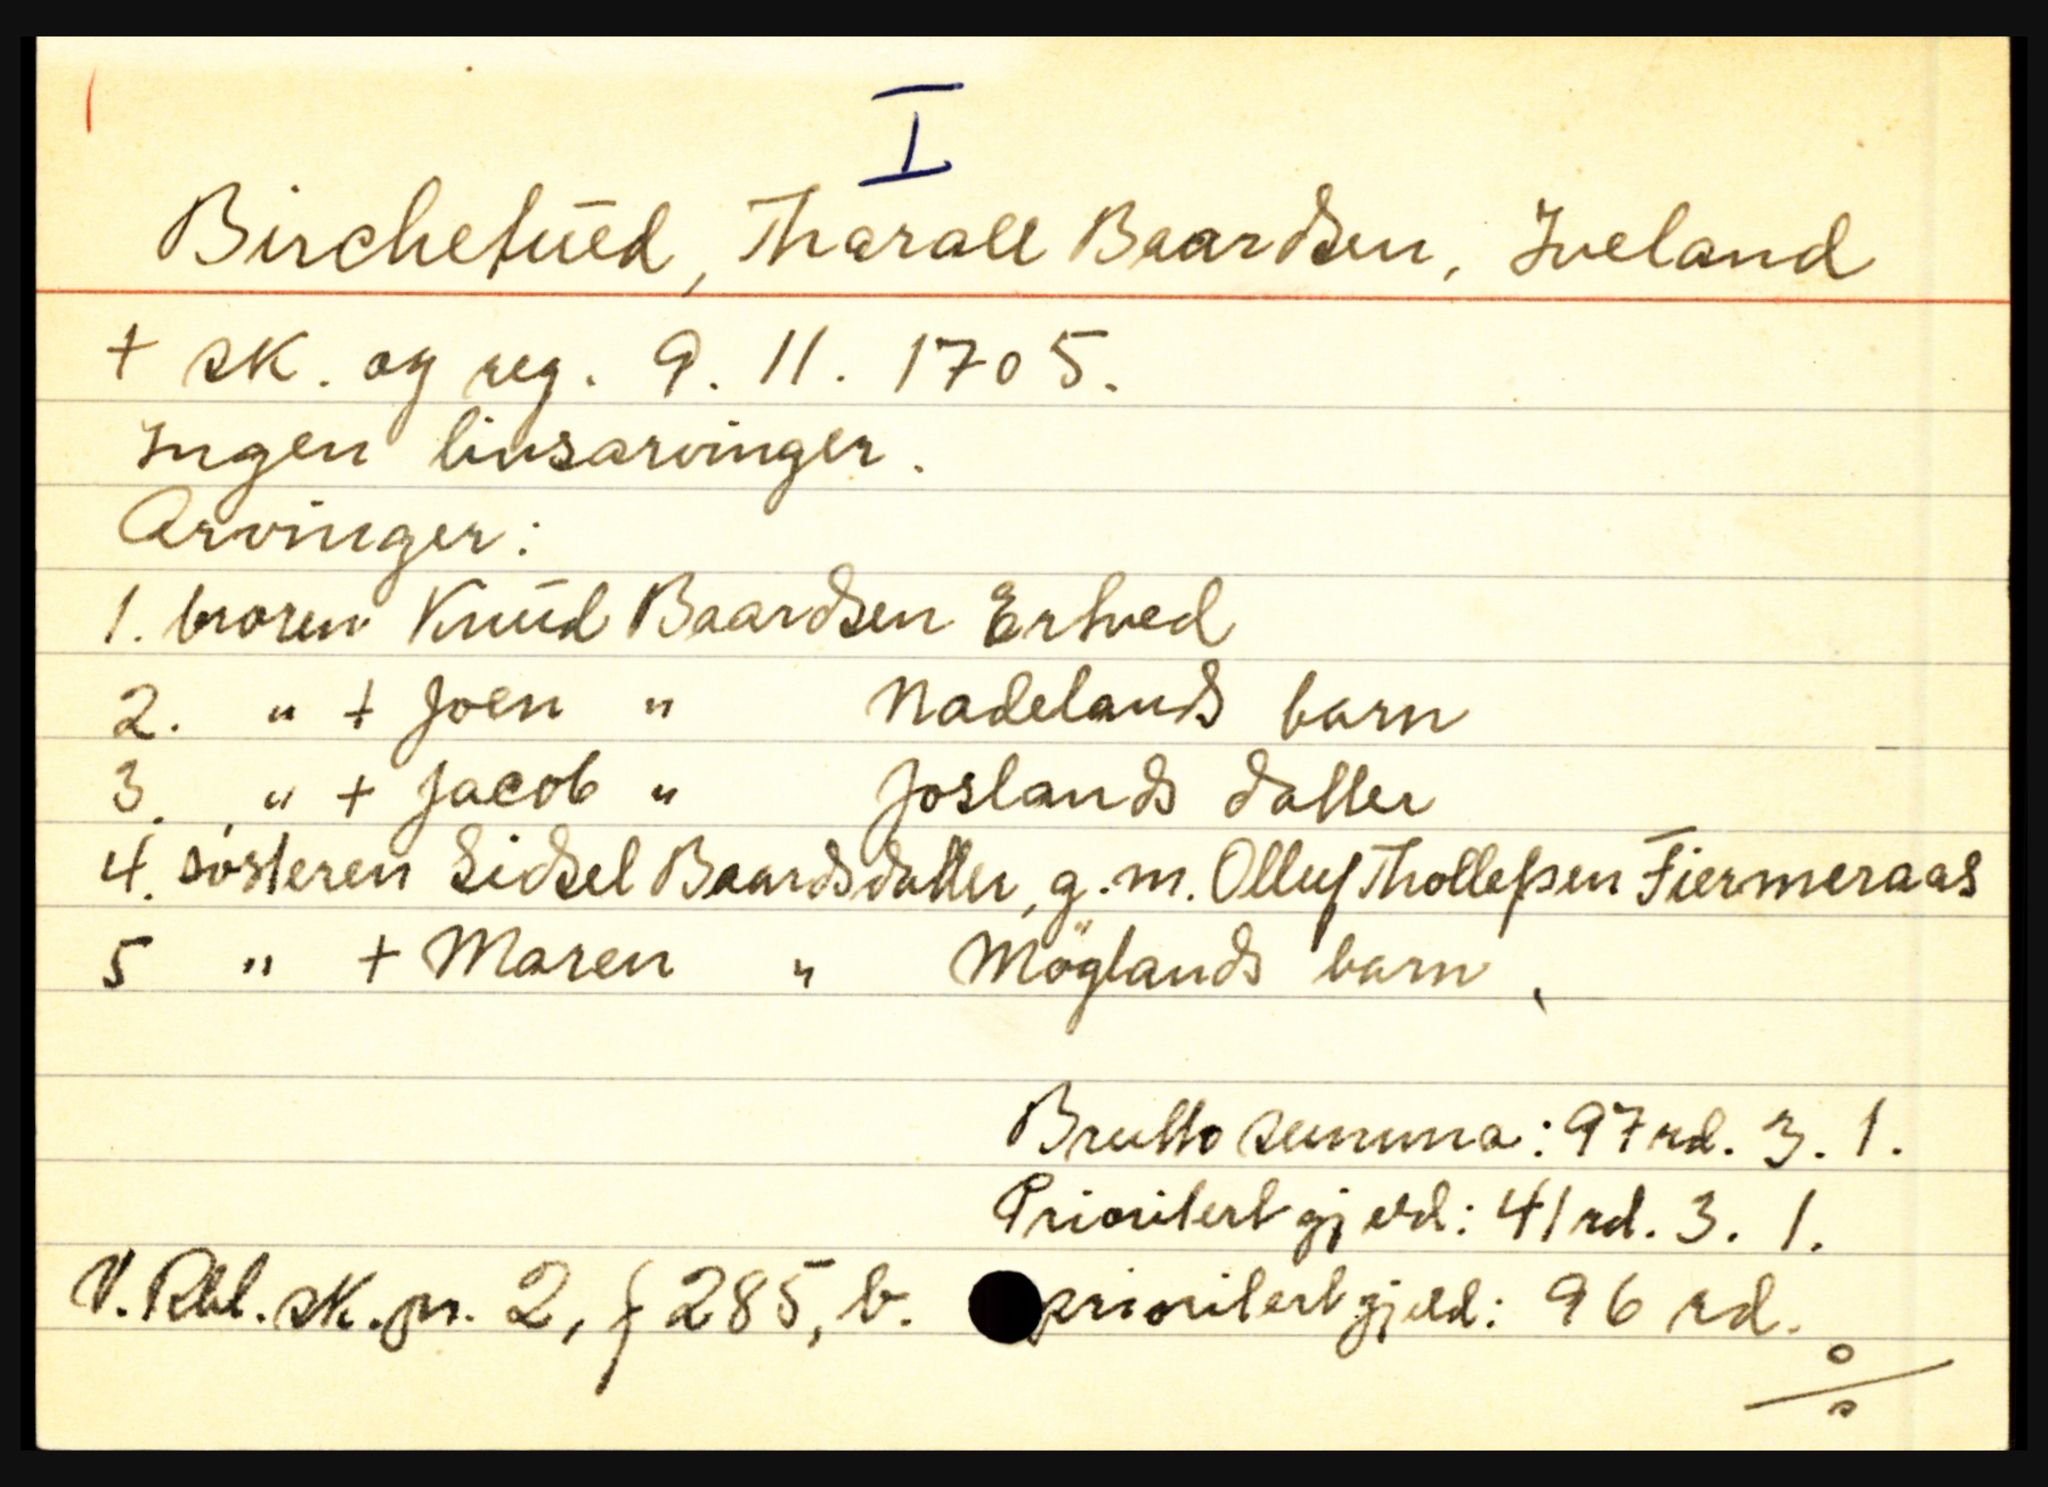 I
Birchetüed, Tharall Baardsen, Iveland
+ sk. og reg. 9. 11. 1705.
Ingen livsarvinger.
Arvinger:
1. broren Knüd Baardsen Ertved
2. " + Joen " Nadelands barn
3. " + Jacob " Joslands datter
4. søsteren Sidsel Baardsdatter, g.m. Olluf Tholleſsen Fiermeraas
5 " + Maren " Möglands barn
Brutto summa: 97 rd. 3. 1.
Prioritert gjeld: 41 rd. 3. 1.
V. Rbl. sk. pr. 2, f 285, b. prioritert gjeld: 96 rd.